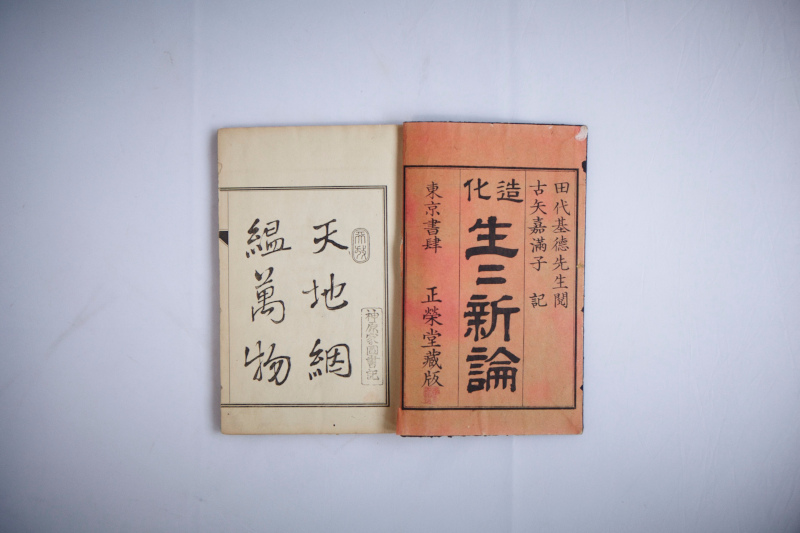 田代基德先生閲
古矢嘉滿子 記
造化
生二新論
東京書肆 正榮堂藏版
天地絪
縕萬物
神原家圖書記